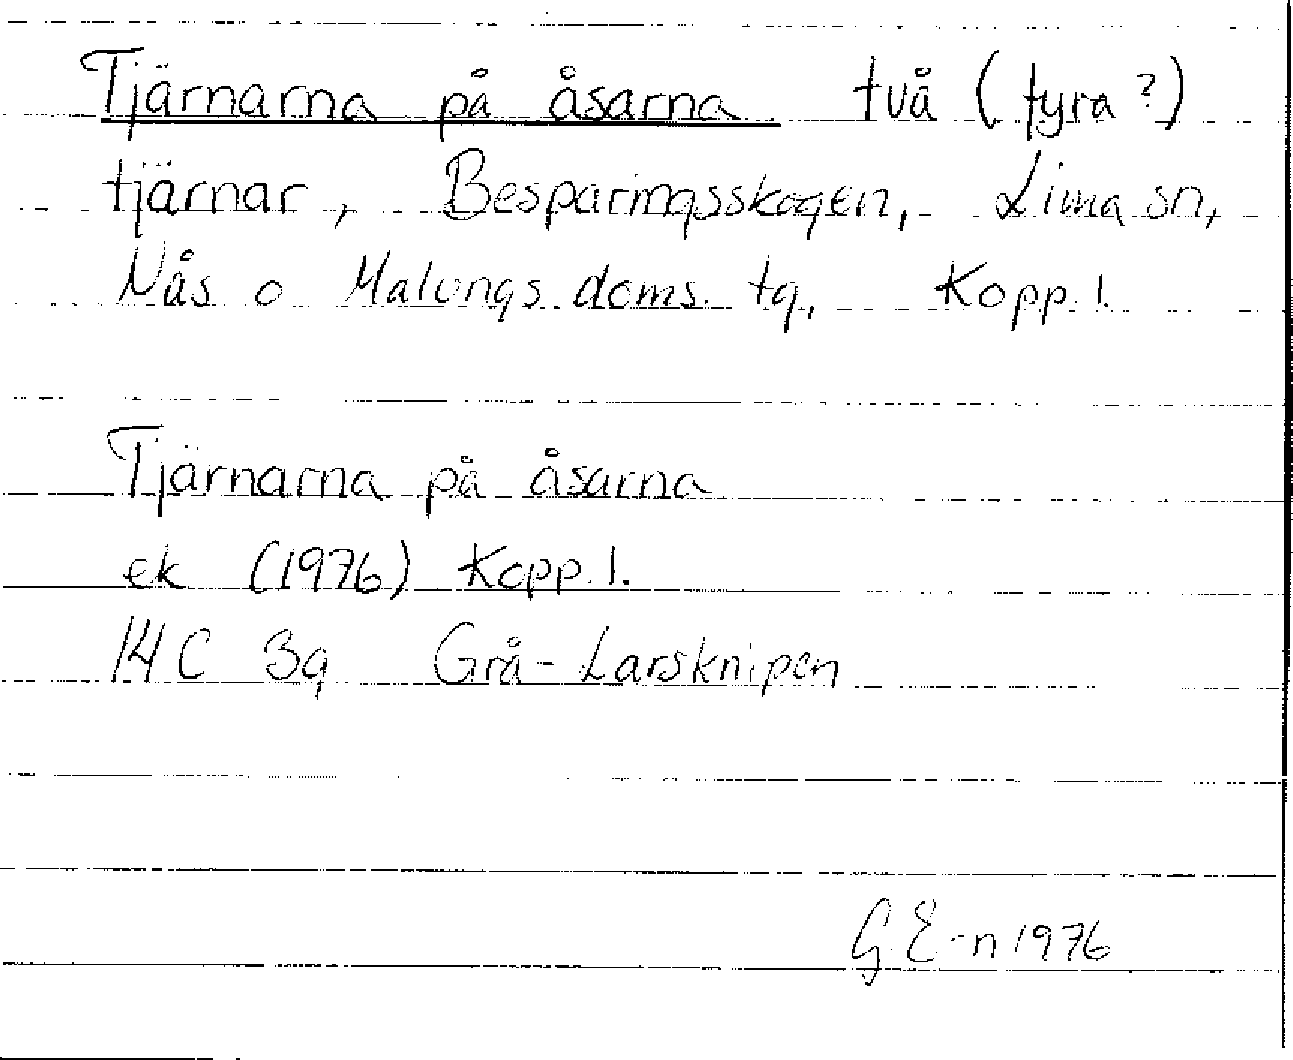 Tjärnarna på åsarna två (fyra?)
tjärnar, Besparingsskogen, Lima sn,
Nås o Malungs doms. tg, Kopp. l.
Tjärnarna på åsarna
ek (1976) Kopp. l.
14 C 3g Grå-Larsknipen
G E-n 1976